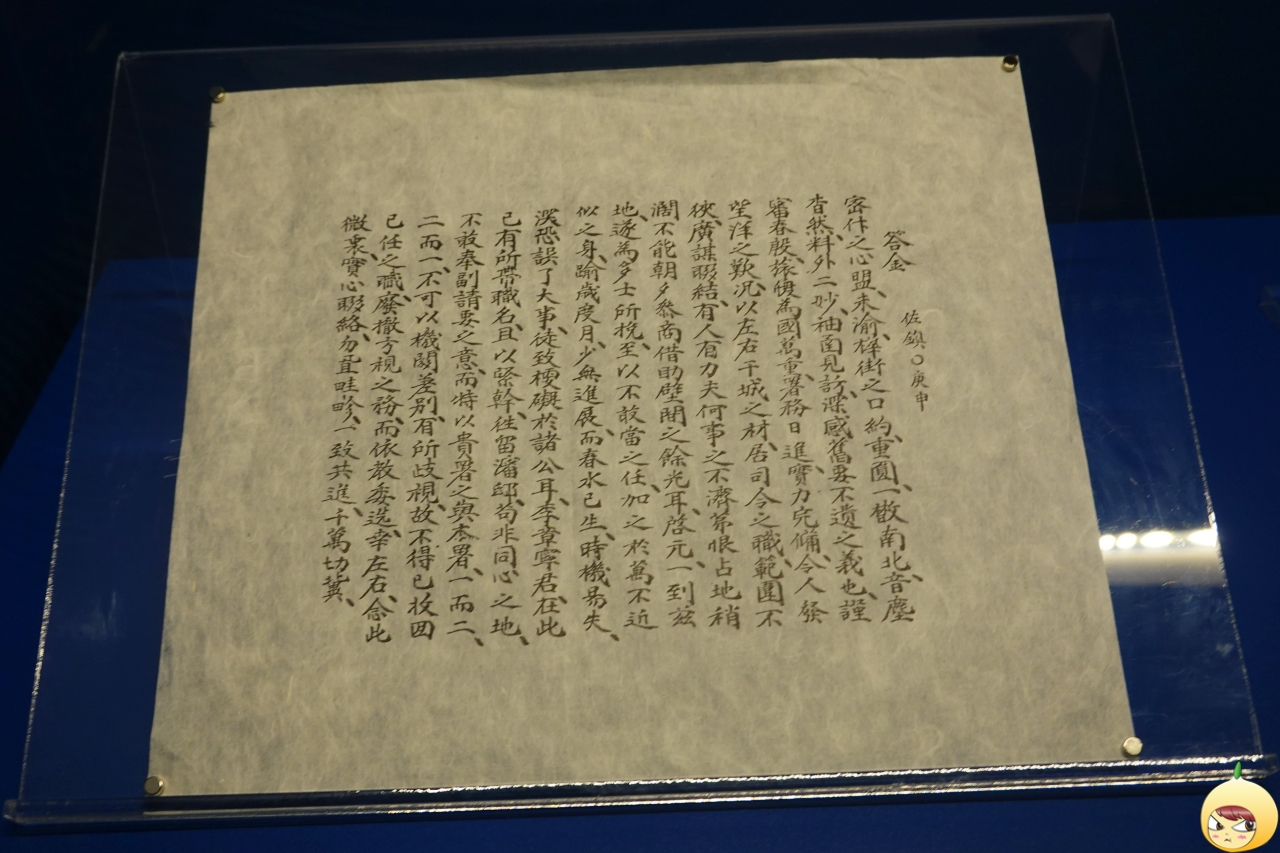 答金佐鎮○庚申
密仵之心盟、未渝、槹街之口約、重圓、一檄南北、音塵
杳然、料外二妙、袖函見訪、深感舊要不遺之義也、謹
審春殷、旅候爲國萬重、署務日進、實力完備、令人發
望洋之歎、况以左右干城之材、居司令之職、範圍不
狹、廣謀聯結、有人有力、夫何事之不濟、第恨占地稍
濶、不能朝夕叅商、借助壁間之餘光耳、啓元一到玆
地、遂爲多士所挽、至以不敢當之任、加之於萬不近
似之身、踰歲度月、少無進展、而春水已生、時機易失、
深恐誤了大事、徒致梗礙於諸公耳、李章寧君、在此
已有所帶職名、且以緊幹、徃留瀋邸、苟非同心之地、
不敢奉副請要之意、而特以貴署之與本署、一而二、
二而一、不可以機關差別、有所歧視、故不得已收回
已任之職、廢撤方視之務、而依敎委送、幸左右、念此
微衷、實心聯絡、勿置畦畛、一致共進、千萬切冀、